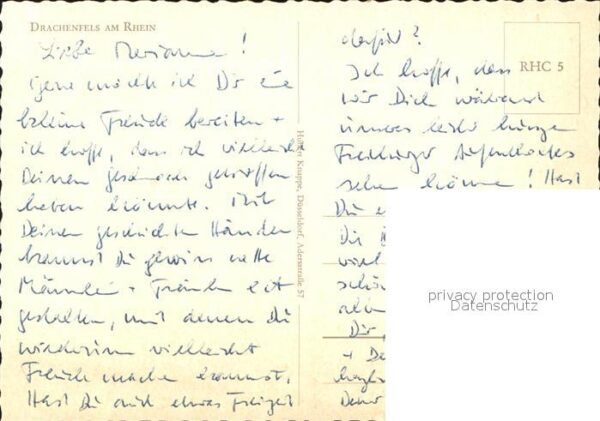 DRACHENFELS AM RHEIN
Liebe Marianne!
Gerne möchte ich Dir eine
kleine Freude bereiten +
ich hoffe, dass ich vielleicht
Deinen Geschmack getroffen
haben könnte. Mit
Deinen geschickten Händen
kannst Du gewiss nette
Männlein + Fräulein
gestalten, mit denen Du
wiederum vielleicht
Freude machen kannst.
Hast Du auch etwas Freizeit
Hunter Knappe, Düsseldorf, Adersstraße 57
dafür?
Ich hoffe, dass
wir Dich während
unseres leider kurzen
Freiburger Aufenthaltes
sehen können! Hast
Du
Dir
schön
Dir,
+ De
RHC 5
privacy protection
Datenschutz